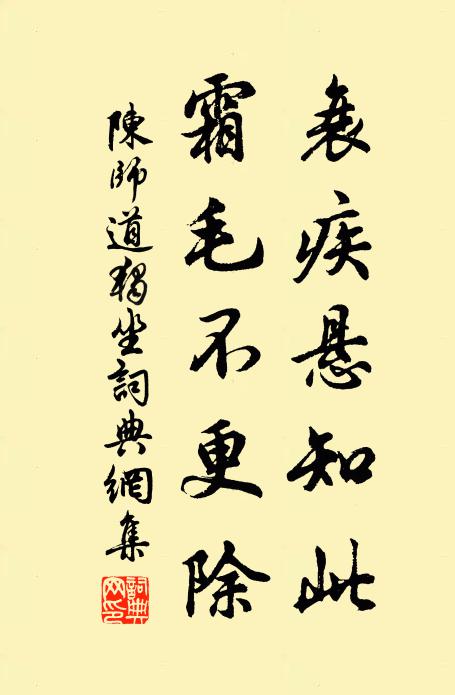 衰疾悬知此
霜毛不更除
陳師道獨坐詞典網集
詞典網印